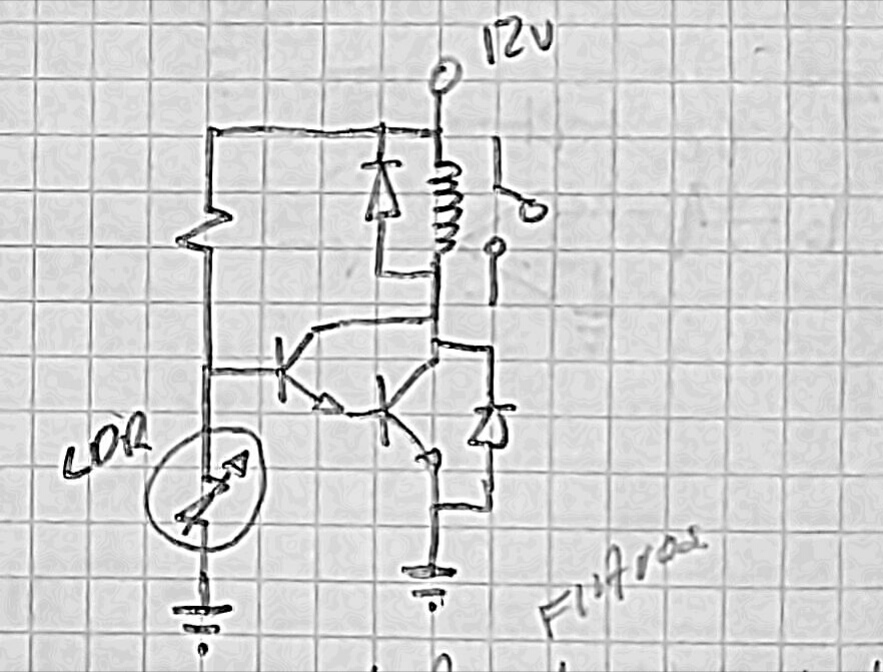 12V
LDR
Filtros